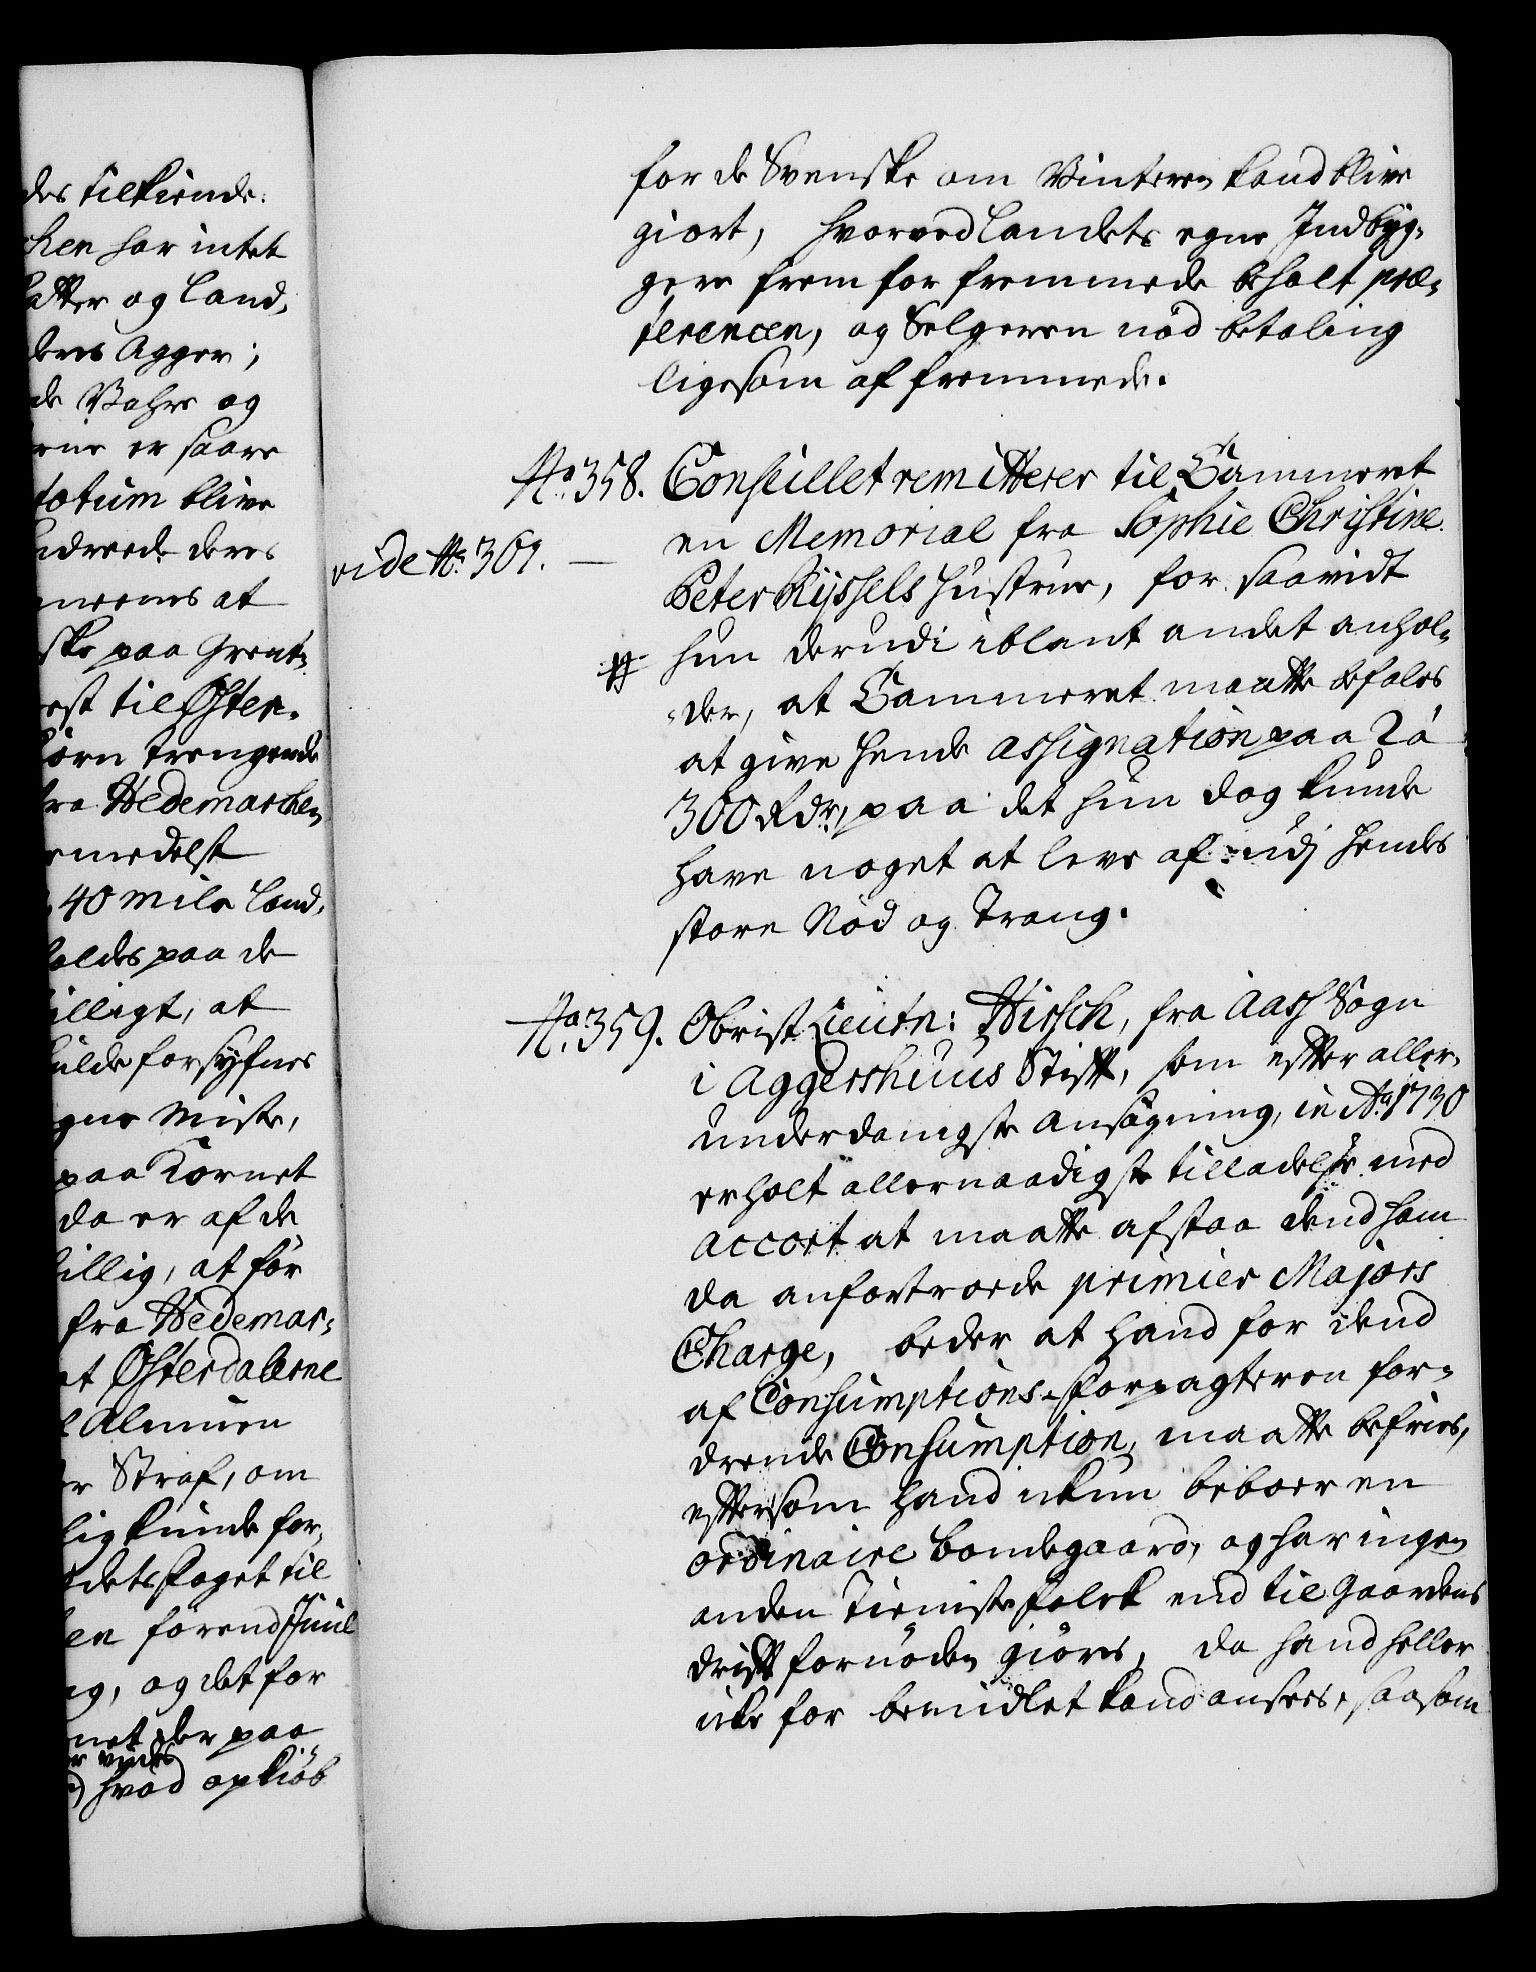 des tilkiende:
chen har intet
atter og Land,
deres Agger;
de Bahre og
rne er saare
totum blive
deres
at
ske paa Grent,
est til Øster,
iørn trengende
fra Hedemarken
medelst
40 Miler Land,
holdes paa de
illigt, at
ulde forsyfnes
gne Miste,
paa Kornet
da er af de
billig, at før
fra Hedemar,
at Østerdalerne
l Almuen
er Straf, om
lig kunde for,
det Foget til
en førend Juul
ng, og det for
net der paa
hvad opkiøb
for de Svenske om Vinteren kand blive
giort, hvorved Landets egne Indbyg,
gere frem for fremmede beholt præ,
ferencen, og Selgeren nød betaling
ligesom af fremmede.
No. 358. Conseillet remitterer til Cammeret
en Memorial fra Sophie Christine
vide No. 361. —
Peter Ryssels Hustrue, for saavidt
hun derudi iblant andet anhol,
der, at Cammeret maatte befales
at give hende assignation paa 2 à
300 Rdr, paa det hun dog kunde
have noget at leve af udj hendes
store Nød og Trang.
No. 359. Obrist Lieutn: Hirsch, fra Aass Sogn
i Aggershuus Stift, som efter aller,
underdanigste Ansøgning, in Ao. 1730
erholt allernaadigste tilladelse med
accort at maatte afstaa dend ham
da anfortroede premier Majors
Charge, beder at hand for dend
af Consumptions-Forpagteren for,
drende Consumption, maatte befries,
eftersom hand ikun beboer en
ordinaire Bondegaard, og har ingen
anden Tieniste Folck end til Gaardens
drift fornøden giøres, da hand heller
icke for bemidlet kand ansees, saasom